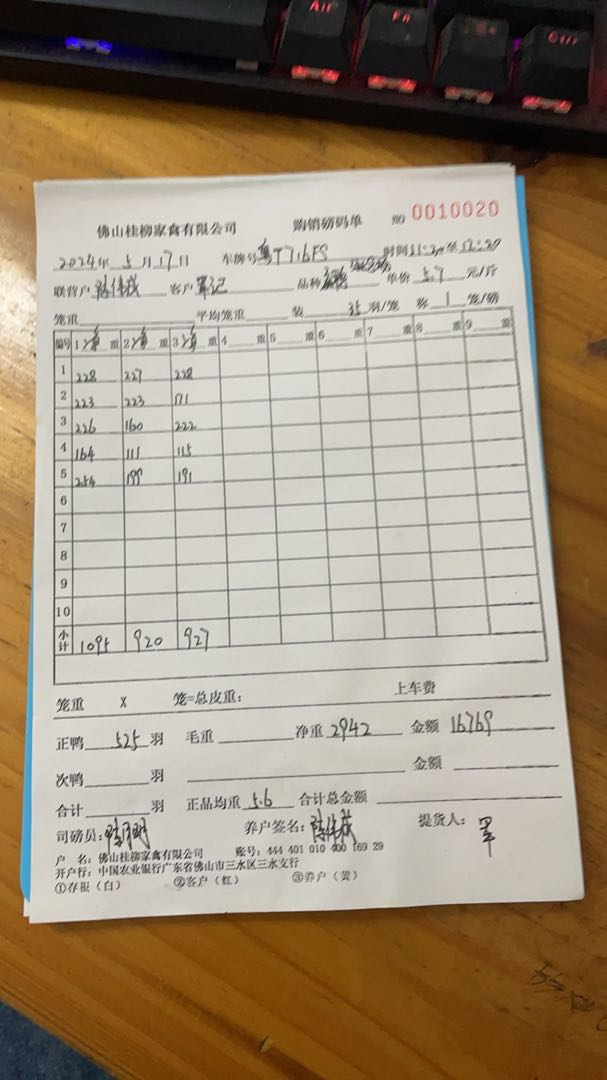 Alt Fn Ctrl
佛山桂柳家禽有限公司 购销磅码单 NO 0010020
2024年5月17日 车牌号粤T716FS 时间11:20至12:20
联营户 陈伟成 客户 覃记 品种 单价 5.7 元/斤
笼重 平均笼重 装 35 羽/笼 称 1 笼/磅
编号 1 净重 2 净重 3 净重 4 重 5 重 6 重 7 重 8 重 9 重
1 228 227 228
2 223 223 171
3 226 160 222
4 164 111 115
5 254 199 191
6
7
8
9
10
小计 1095 920 927
笼重 X 笼=总皮重: 上车费
正鸭 525 羽 毛重 净重 2942 金额 16769
次鸭 羽 金额
合计 羽 正品均重 5.6 合计总金额
司磅员: 养户签名: 陈伟成 提货人: 覃
户 名: 佛山桂柳家禽有限公司 账号: 444 401 010 400 169 29
开户行: 中国农业银行广东省佛山市三水区三水支行
①存根(白) ②客户(红) ③养户(黄)